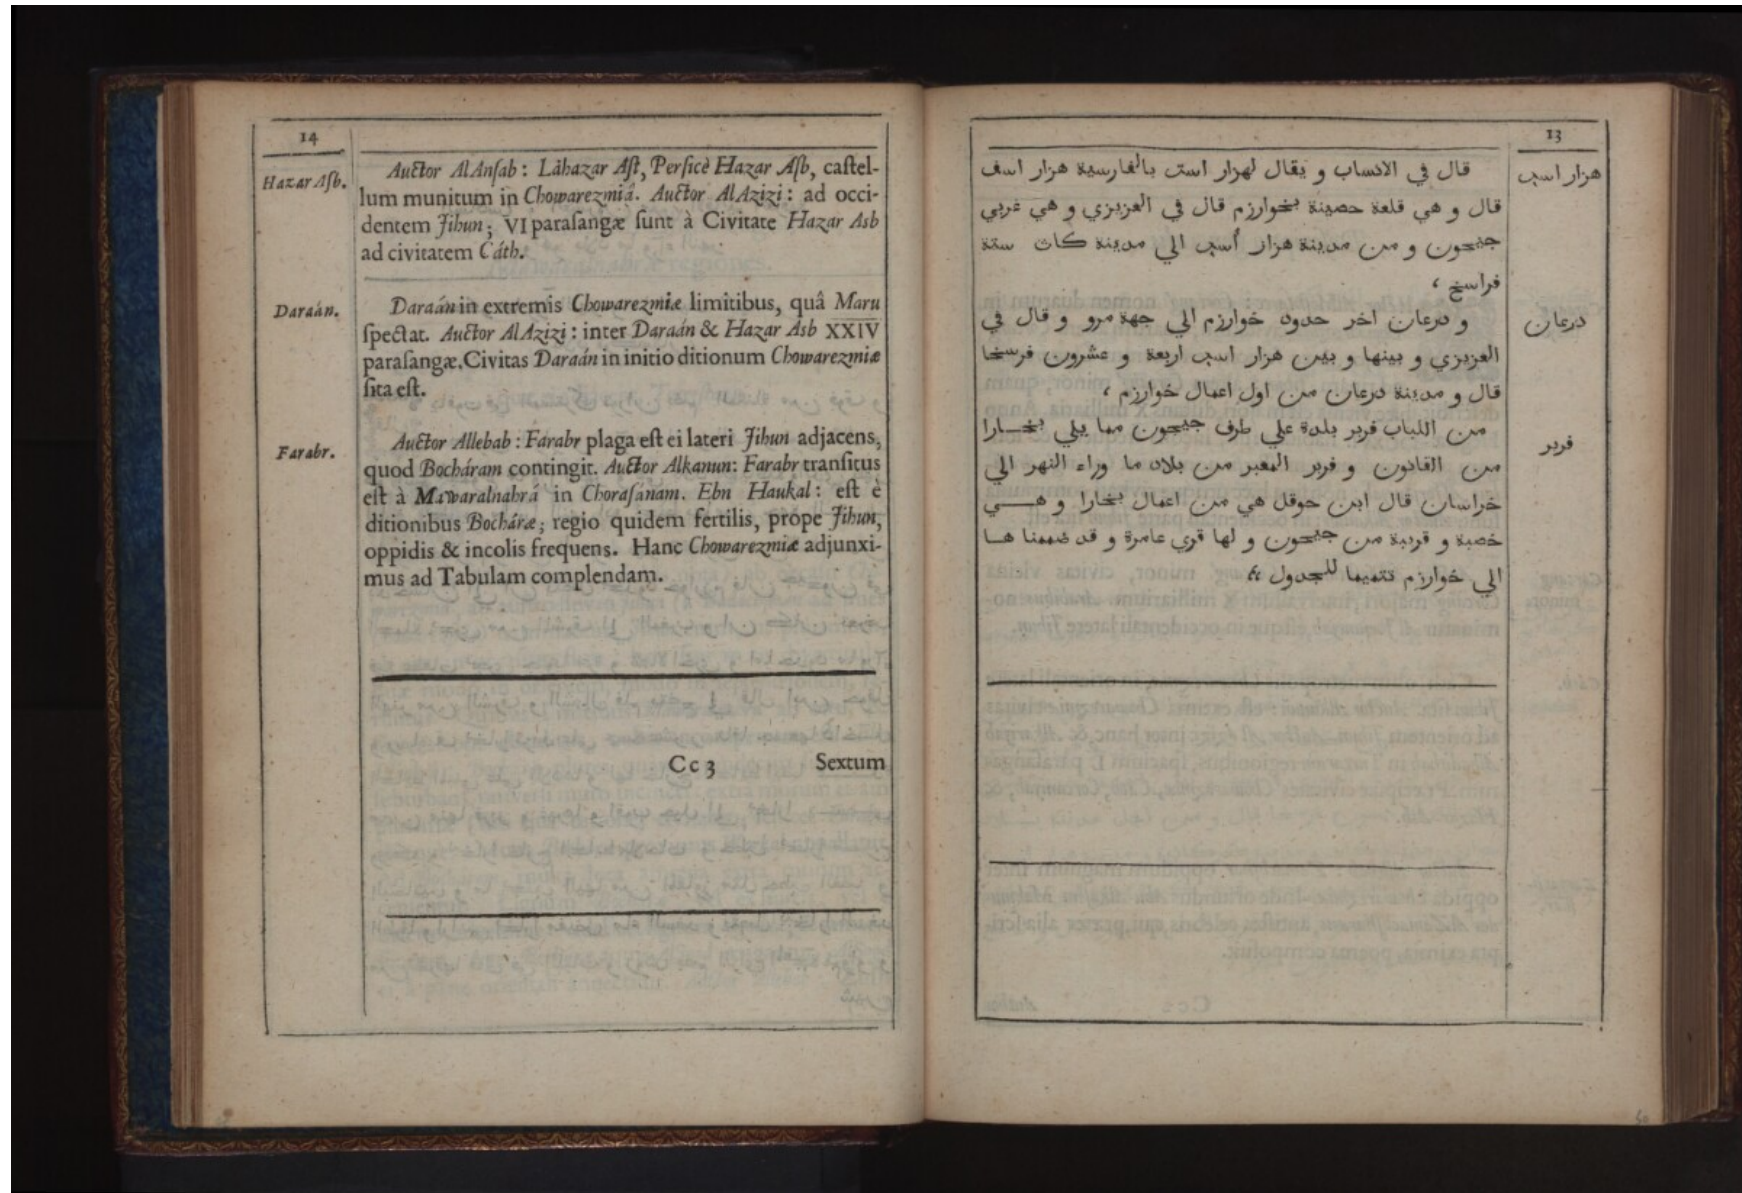 14
Hazar Asb.
Auctor AlAnsab: Láhazar Ast, Persicè Hazar Asb, castel-
lum munitum in Chowarezmiâ. Auctor AlAzizi: ad occi-
dentem Jihun; VI parasangæ sunt à Civitate Hazar Asb
ad civitatem Cáth.
Daraán.
Daraán in extremis Chowarezmiæ limitibus, quâ Maru
spectat. Auctor AlAzizi: inter Daraán & Hazar Asb XXIV
parasangæ. Civitas Daraán in initio ditionum Chowarezmiæ
sita est.
Farabr.
Auctor Allebab: Farabr plaga est ei lateri Jihun adjacens,
quod Bocháram contingit. Auctor Alkanun: Farabr transitus
est à Mawaralnahrá in Chorasánam. Ebn Haukal: est è
ditionibus Bocháræ; regio quidem fertilis, prope Jihun,
oppidis & incolis frequens. Hanc Chowarezmiæ adjunxi-
mus ad Tabulam complendam.
Cc 3
Sextum
13
هزار اسب
قال في الانساب و يقال لهزار است بالفارسية هزار اسف
قال و هي قلعة حصينة بخوارزم قال في العزيزي و هي غربي
جيحون و من مدينة هزار أسب الي مدينة كاث ستة
فراسخ ،
درعان
و درعان اخر حدود خوارزم الي جهة مرو و قال في
العزيزي و بينها و بين هزار اسب اربعة و عشرون فرسخا
قال و مدينة درعان من اول اعمال خوارزم ،
فربر
من اللباب فربر بلدة علي طرف جيحون مما يلي بخارا
من القانون و فربر المعبر من بلاد ما وراء النهر الي
خراسان قال ابن حوقل هي من اعمال بخارا و هي
خصبة و قريبة من جيحون و لها قري عامرة و قد ضممنا ها
الي خوارزم تتميما للجدول